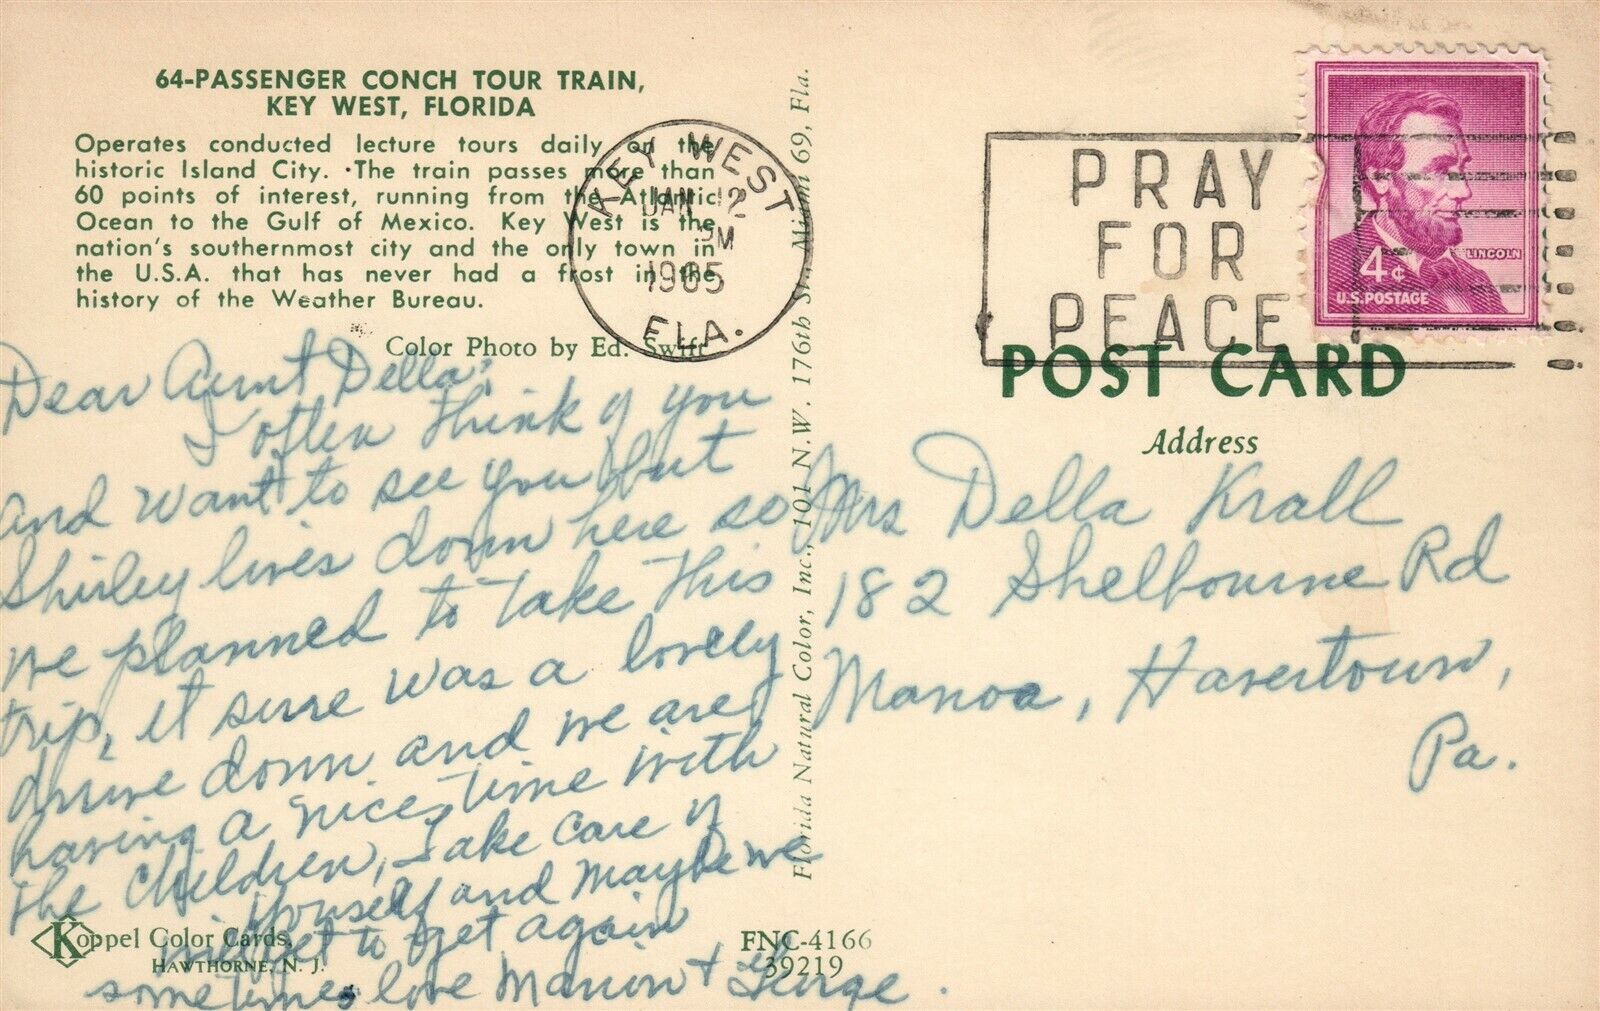 64-PASSENGER CONCH TOUR TRAIN,
KEY WEST, FLORIDA
Operates conducted lecture tours daily on the
historic Island City. The train passes more than
60 points of interest, running from the Atlantic
Ocean to the Gulf of Mexico. Key West is the
nation's southernmost city and the only town in
the U.S.A. that has never had a frost in the
history of the Weather Bureau.
Color Photo by Ed. Swift
Dear Aunt Della;
I often think of you
and want to see you but
Shirley lives down here so
we planned to take this
trip, it sure was a lovely
drive down and we are
having a nice time with
the children, Take care of
yourself and maybe we
will get to get again
sometimes, love Marion + George.
Koppel Color Cards,
HAWTHORNE, N. J.
FNC-4166
39219
Florida Natural Color, Inc., 101 N.W. 176th St., Miami 69, Fla.
KEY WEST
JAN 12
PM
1965
FLA.
PRAY
FOR
PEACE
LINCOLN
4¢
U.S. POSTAGE
POST CARD
Address
Mrs Della Krall
182 Shelbourne Rd
Manoa, Havertown,
Pa.